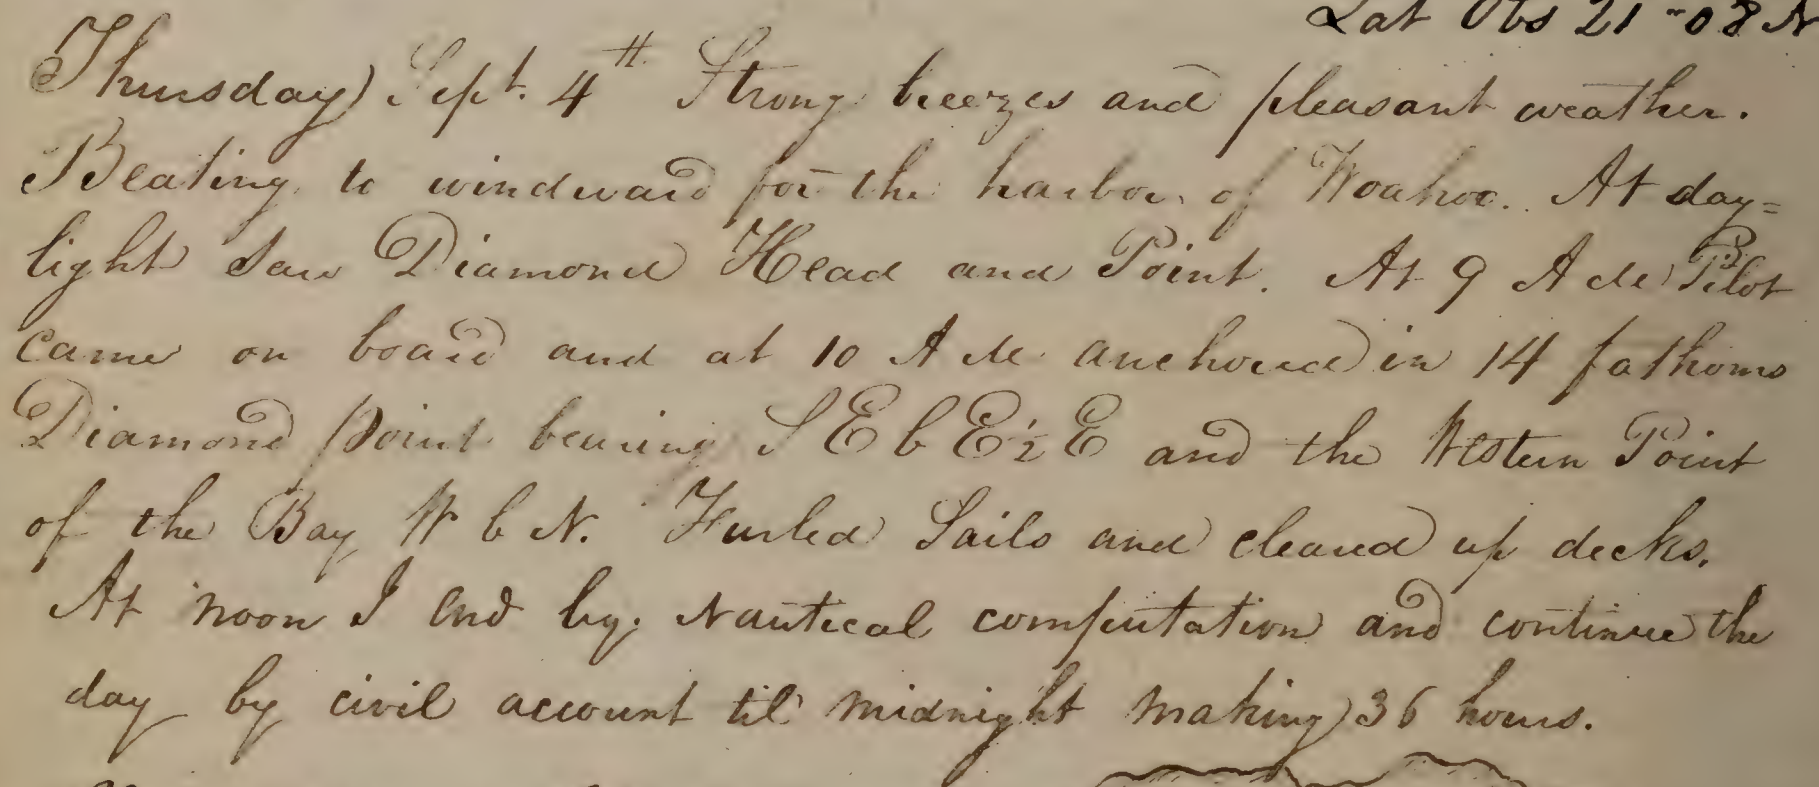 Lat Obs 21-08 N
Thursday Sept. 4th Strong breezes and pleasant weather.
Beating to windward for the harbor of Woahoo. At day=
light saw Diamond Head and Point. At 9 A M Pilot
came on board and at 10 A M anchored in 14 fathoms
Diamond point bearing S E b E ½ E and the Western Point
of the Bay W b N. Furled Sails and cleared up decks.
At noon I end by Nautical computation and continue the
day by civil account til midnight making 36 hours.